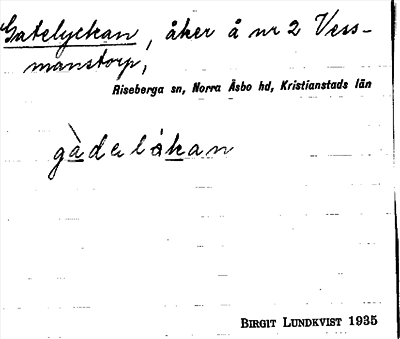 Gatelyckan, åker å nr 2 Vess-
manstorp,
Riseberga sn, Norra Åsbo hd, Kristianstads län
gàdelåkan
BIRGIT LUNDKVIST 1935